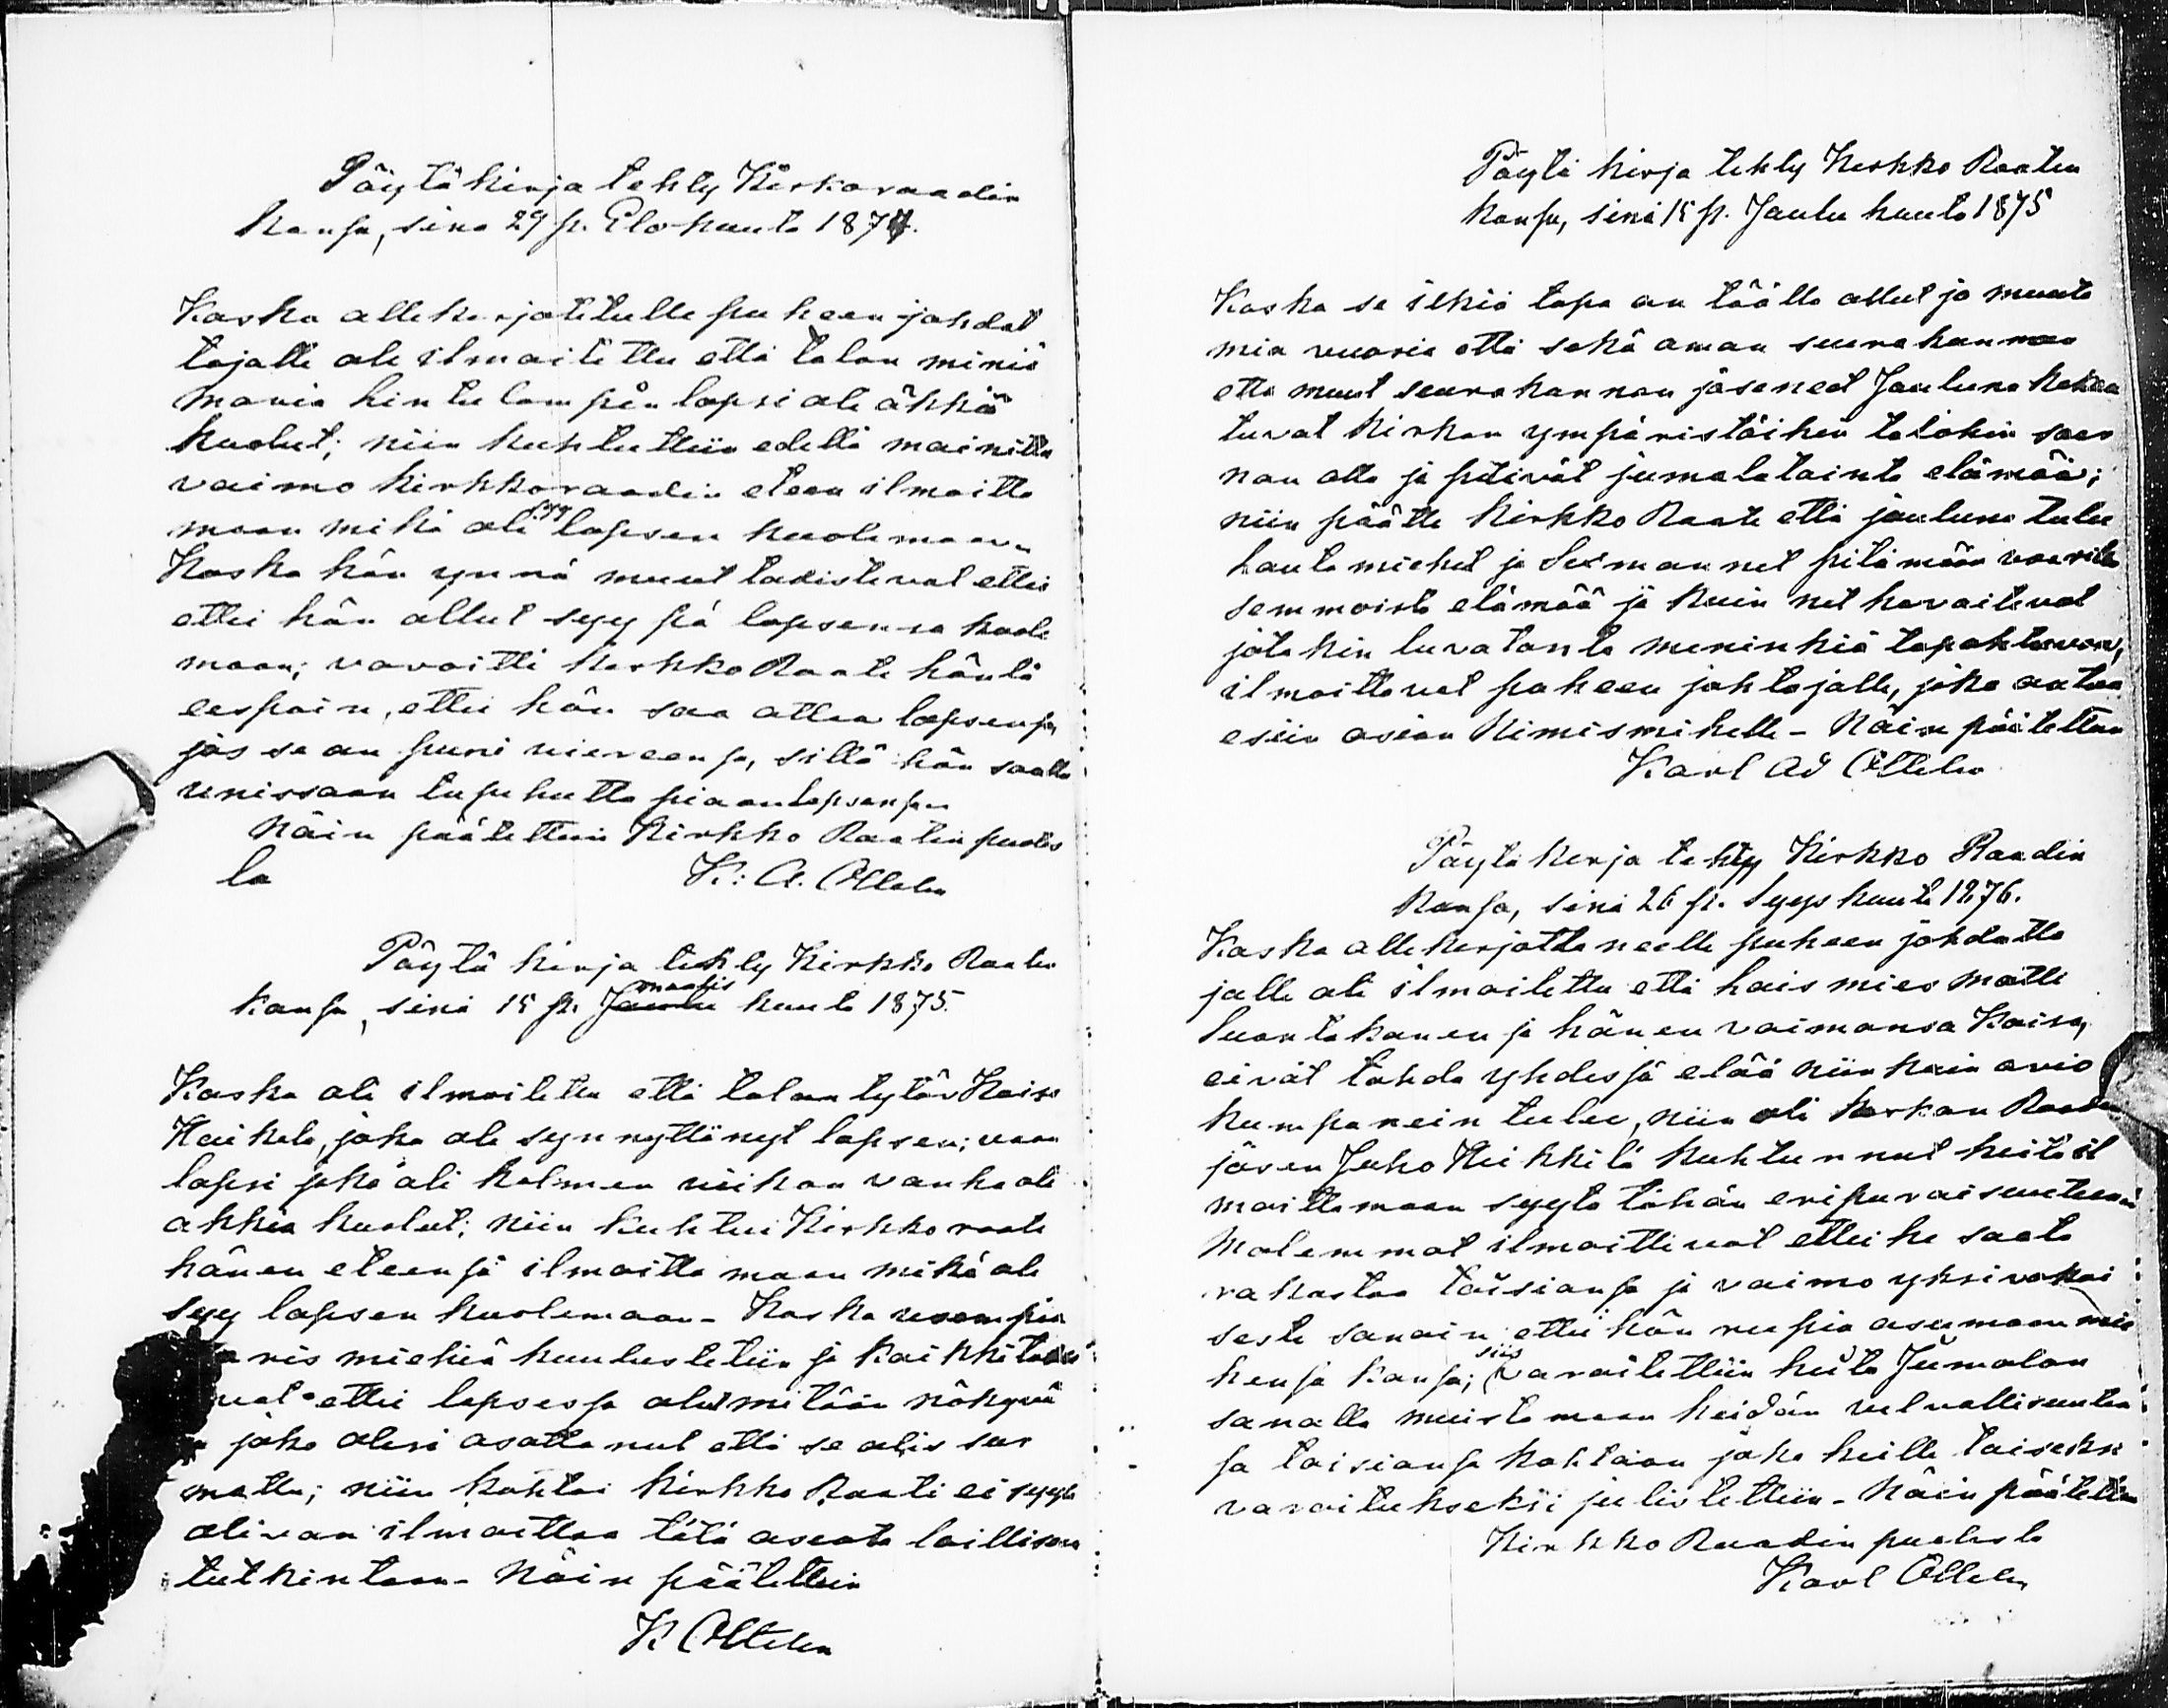 Pöytäkirja tehty Kirkoraadin
kansa, sinä 29 p. Elokuuta 1874.
Koska allekirjoitetulle puheen johdat
tajalle oli ilmoitettu että talon miniä
Maria Hintulampin lapsi oli äkkiä
kuolut; niin kuhtuttiin edellä mainittu
vaimo kirkkoraadin eteen ilmoitta
maan mikä oli syy lapsen kuolemaan
Koska hän ynnä muut todistivat ettei
ettei hän ollut syy pä lapsensa kuole
maan; varoitti Kirkko Raati häntä
eespäin, ettei hän saa ottaa lapsensa,
jos se on pieni viereensa, sillä hän saatta
unissaan tupehutta pian lapsensa
Näin päätettiin Kirkko Raatin puoles
la K: A. Ottelin
Pöytä kirja tehty Kirkko Raatin
kansa, sinä 15 p. Joulu maalis kuuta 1875.
Koska oli ilmoitettu että talon tytär Kaisa
Haikola, joka oli synnyttänyt lapsen; vaan
lapsi joka oli kolmen viikon vanha oli
äkkiä kuolut; niin kuhtui Kirkko raati
hänen eteensä ilmoitta maan mikä oli
syy lapsen kuolemaan - Koska useampia
aris miehiä kuulustetiin ja kaikki todis
vat ettei lapsessa olut mitään näkyvä
joka olisi osotta nut että se olis sur
mattu; niin kohtai Kirkko Raati ei syytä
olivan ilmoittaa tätä asiata laillisen
tutkintaan - Näin päätettiin
K Ottelin
Pöytä kirja tehty Kirkko Raatin
kansa, sinä 15 p. Joulu kuuta 1875
Koska se ilkiä tapa on täällä ollut jo muuta
mia vuosia että sekä oman seurakunnan
että muut seurakunnan jäsenet Jouluna kokoon
tuvat kirkon ympäristöihin taloihin saar
nan alla ja pitivät jumalatointa elämää;
niin päätti Kirkko Raati että jouluna tulee
lauta miehet ja Seksmannet pitämään vaarin
semmoista elämää ja kuin net havaitevat
jotakin luvatonta meninkiä tapahtuvan,
ilmoittavat puheen johtajalle, joka antaa
esiin asian Nimismihelle - Näin päätettiin
Karl Ad Ottelin
Pöytä kirja tehty Kirkko Raadin
kansa, sinä 26 p. Syyskuuta 1876.
Koska alle kirjotta neelle puheen johdatta
jalle oli ilmoitettu että huis mies Matti
Luontokanen ja hänen vaimonsa Kaisa,
eivät tahdo yhdessä elää niinkuin avio
kumpanein tulee, niin oli Kirkon Raadin
jäsen Juho Heikkilä kuhtunnut heitä il
moittamaan syytä tähän eripuraisuuteensa
Molemmat ilmoittivat ettei he saata
rakastaa toisiansa ja vaimo yksivakai
sesti sanoin ettei hän rupia asumaan mie
hensä kansa; siis varoitettiin heitä Jumalan
sanalla muistamaan heidän velvollisuuten
sa toisiansa kohtaan joka heille toiseksi
varoitukseksi julistettiin - Näin päätettiin
Kirkko Raadin puolesta
Karl Ottelin